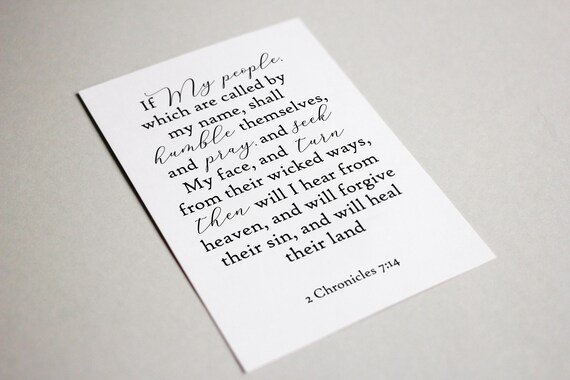 If My people,
which are called by
my name, shall
humble themselves,
and pray, and seek
My face, and turn
from their wicked ways,
then will I hear from
heaven, and will forgive
their sin, and will heal
their land
2 Chronicles 7:14